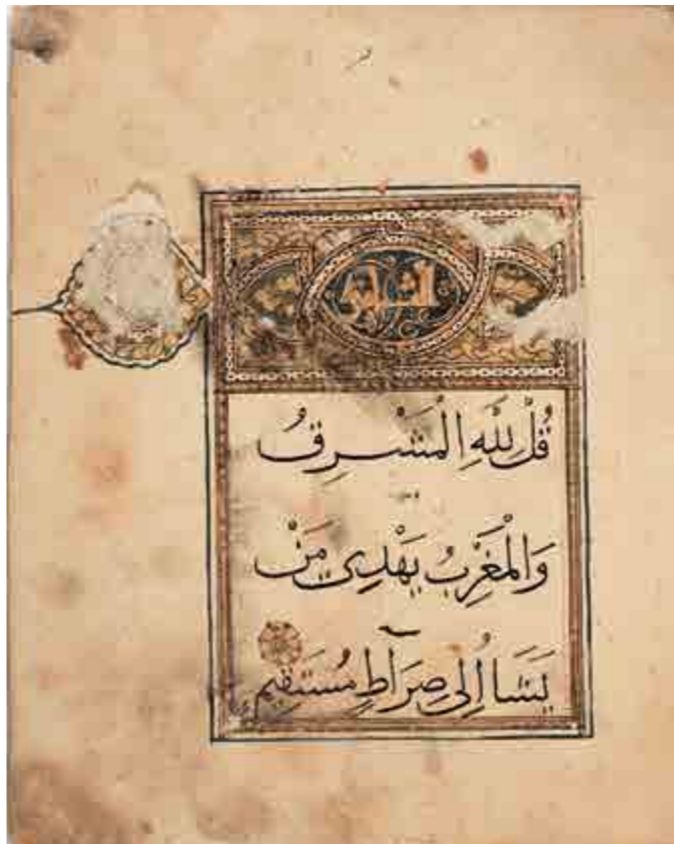 قُلْ لِلَّهِ الْمَشْرِقُ
وَالْمَغْرِبُ يَهْدِي مَنْ
يَشَا إِلَى صِرَاطٍ مُسْتَقِيمٍ